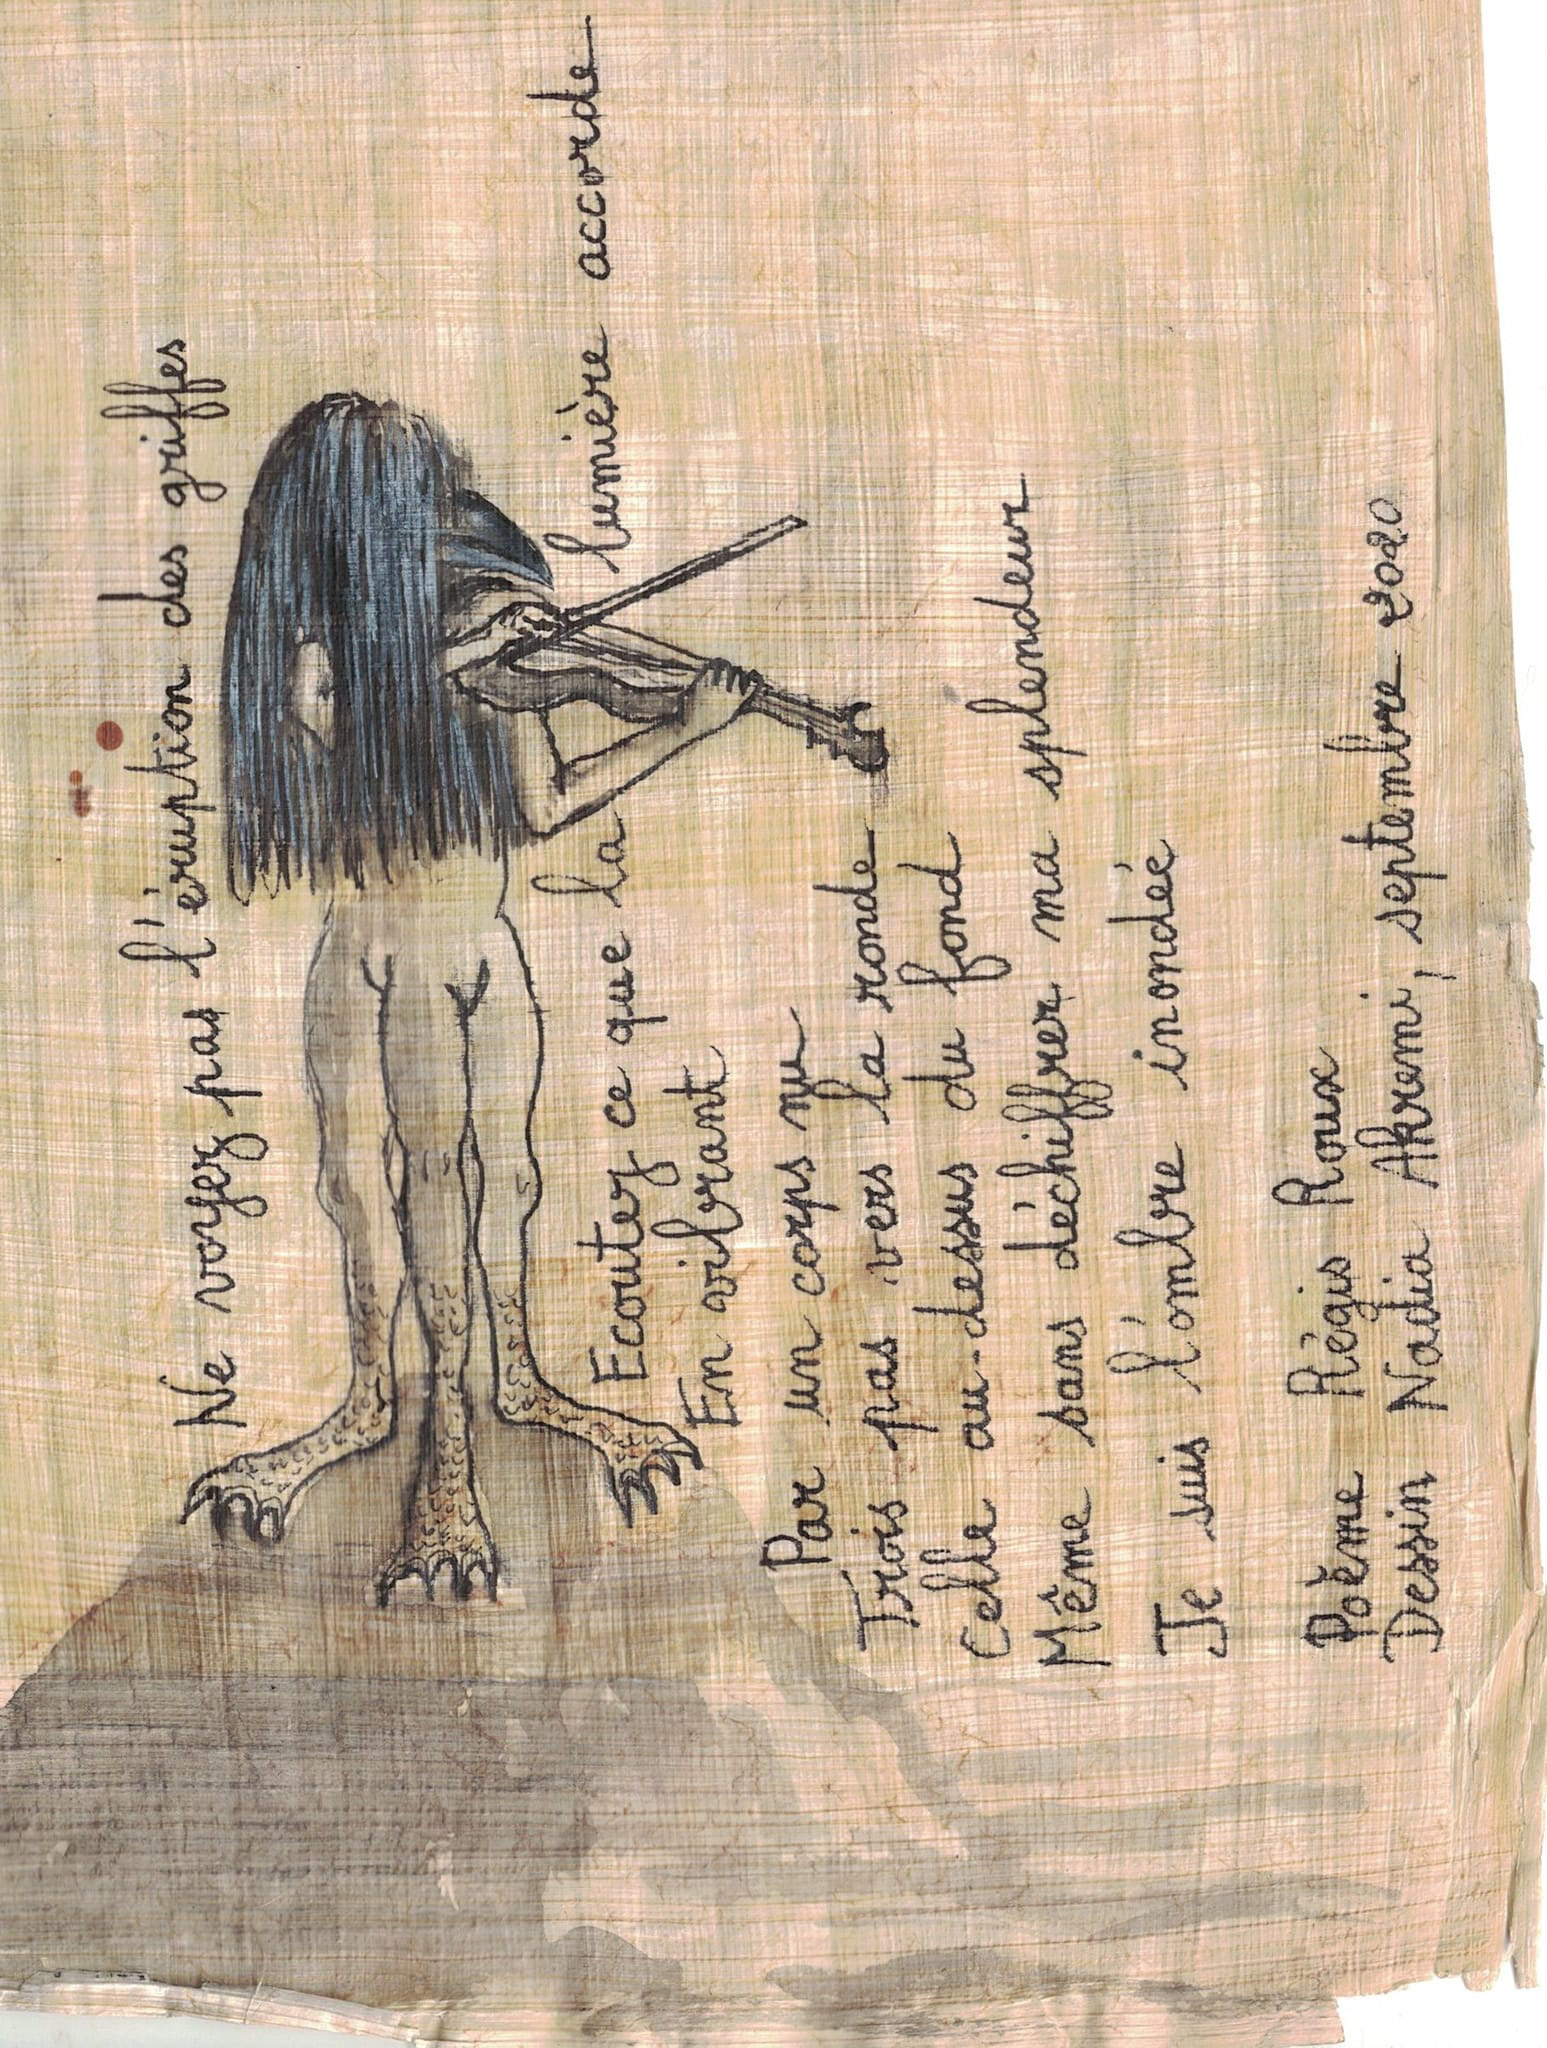 Ne voyez pas l'éruption des griffes
Ecoutez ce que la lumière accorde
En vibrant
Par un corps nu
Trois pas vers la ronde
Celle au-dessus du fond
Même sans déchiffrer ma splendeur
Je suis l'ombre inondée
Poème Régis Roux
Dessin Nadia Akremi, septembre 2020